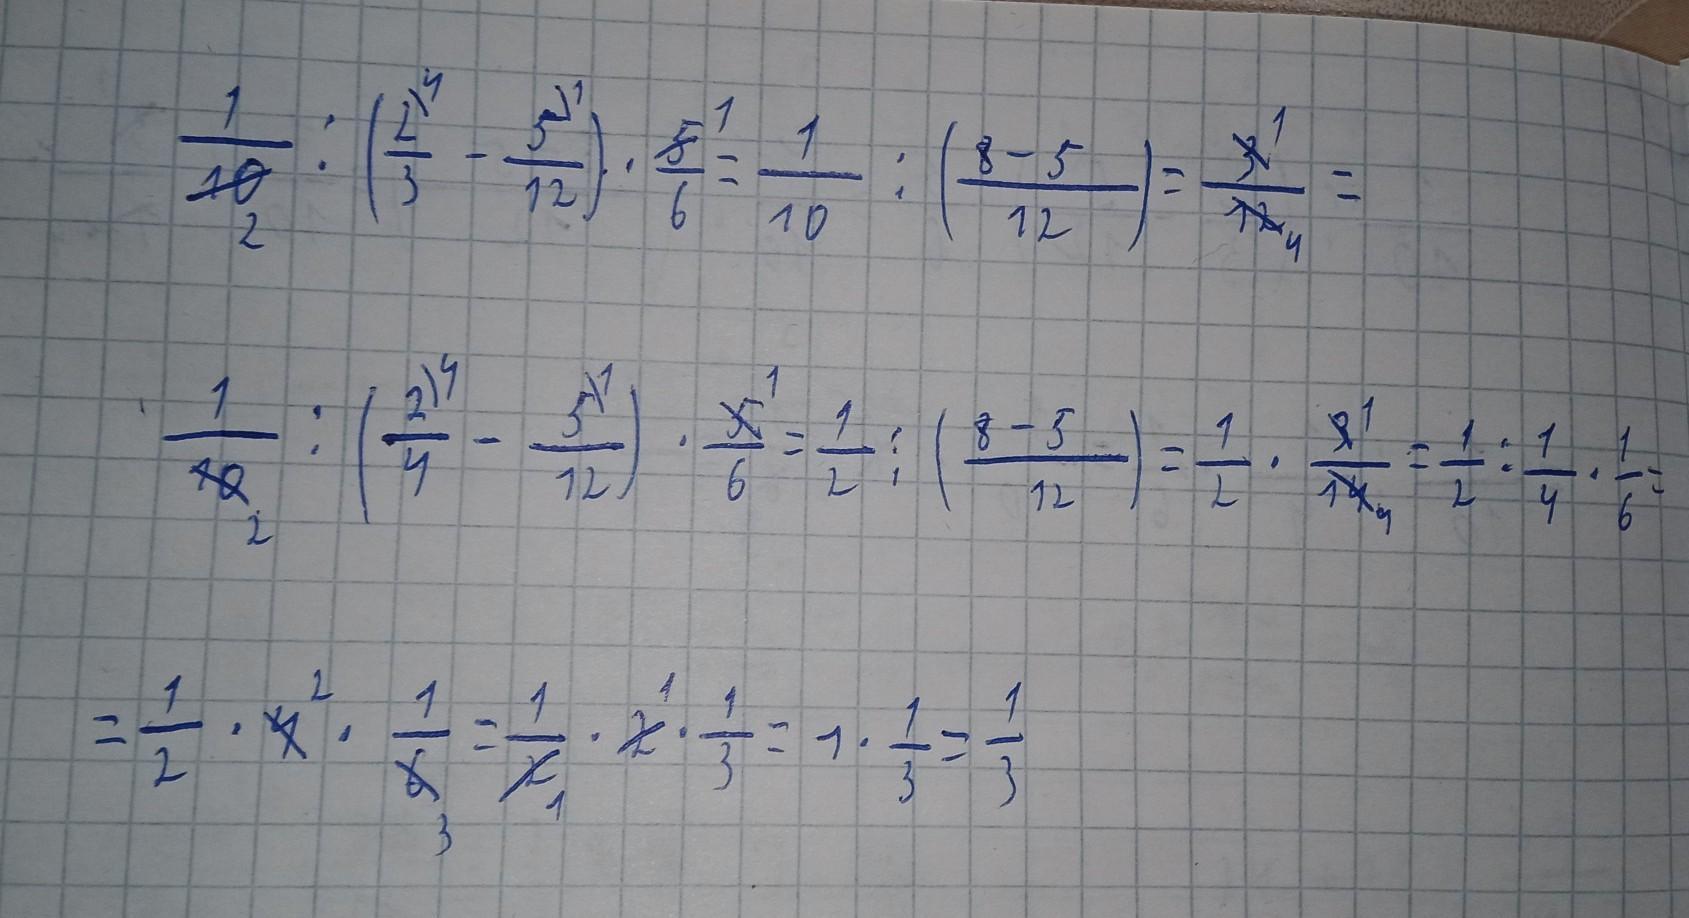 1/10 2 : (2/3 ⁾⁴ - 5/12 ⁾¹) · 5/6 ¹ = 1/10 : (8-5/12) = 3¹/12 4 =
1/10 2 : (2/4 ⁾⁴ - 5/12 ⁾¹) · 5/6 ¹ = 1/2 : (8-5/12) = 1/2 · 3¹/12 4 = 1/2 : 1/4 · 1/6 =
= 1/2 · 4² · 1/6 3 = 1/2 1 · 2¹ · 1/3 = 1 · 1/3 = 1/3